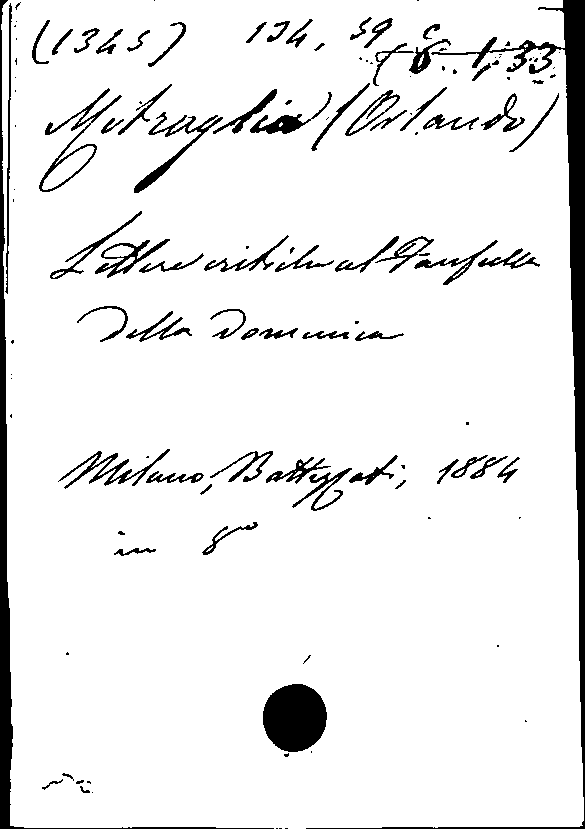 (1345) 134, 59 c
(8. 1, 33.
Mitraglia (Orlando)
Lettere critiche al Fanfulla
della Domenica
Milano, Battezzati, 1884
in 8vo